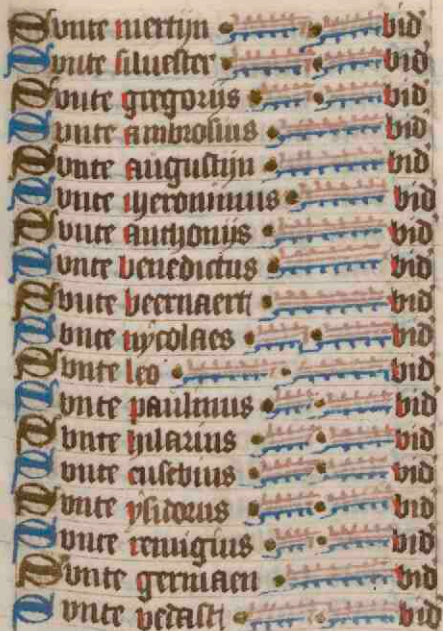 Sunte mertijn bid'
Sunte siluester bid'
Sunte gregorijs bid'
Sunte ambrosius bid'
Sunte augustijn bid'
Sunte iheronimus bid'
Sunte anthonijs bid'
Sunte benedictus bid'
Sunte beernaert bid'
Sunte nycolaes bid'
Sunte leo bid'
Sunte paulinus bid'
Sunte hilarius bid'
Sunte eusebius bid'
Sunte ysidorus bid'
Sunte remigius bid'
Sunte germaen bid'
Sunte vedast bid'